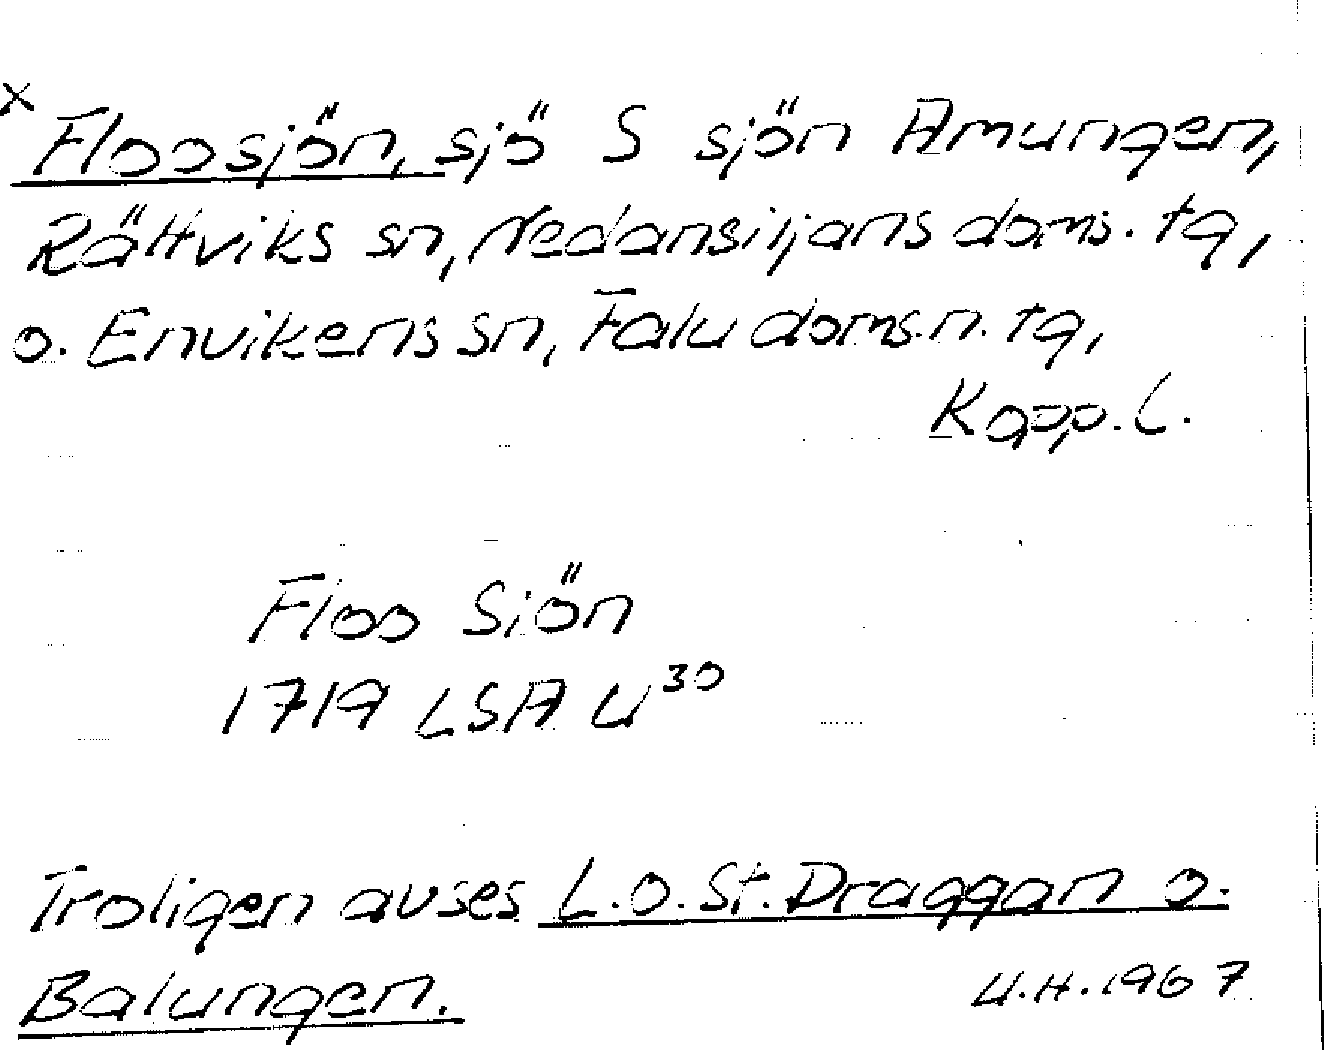 x Floosjön, sjö S sjön Amungen,
Rättviks sn, Nedansiljans doms. tg,
o. Envikens sn, Falu doms.n. tg,
Kopp. l.
Floo Siön
1719 LSA U³⁰
Troligen avses L. o. St. Draggan o.
Balungen.
U.H. 1967